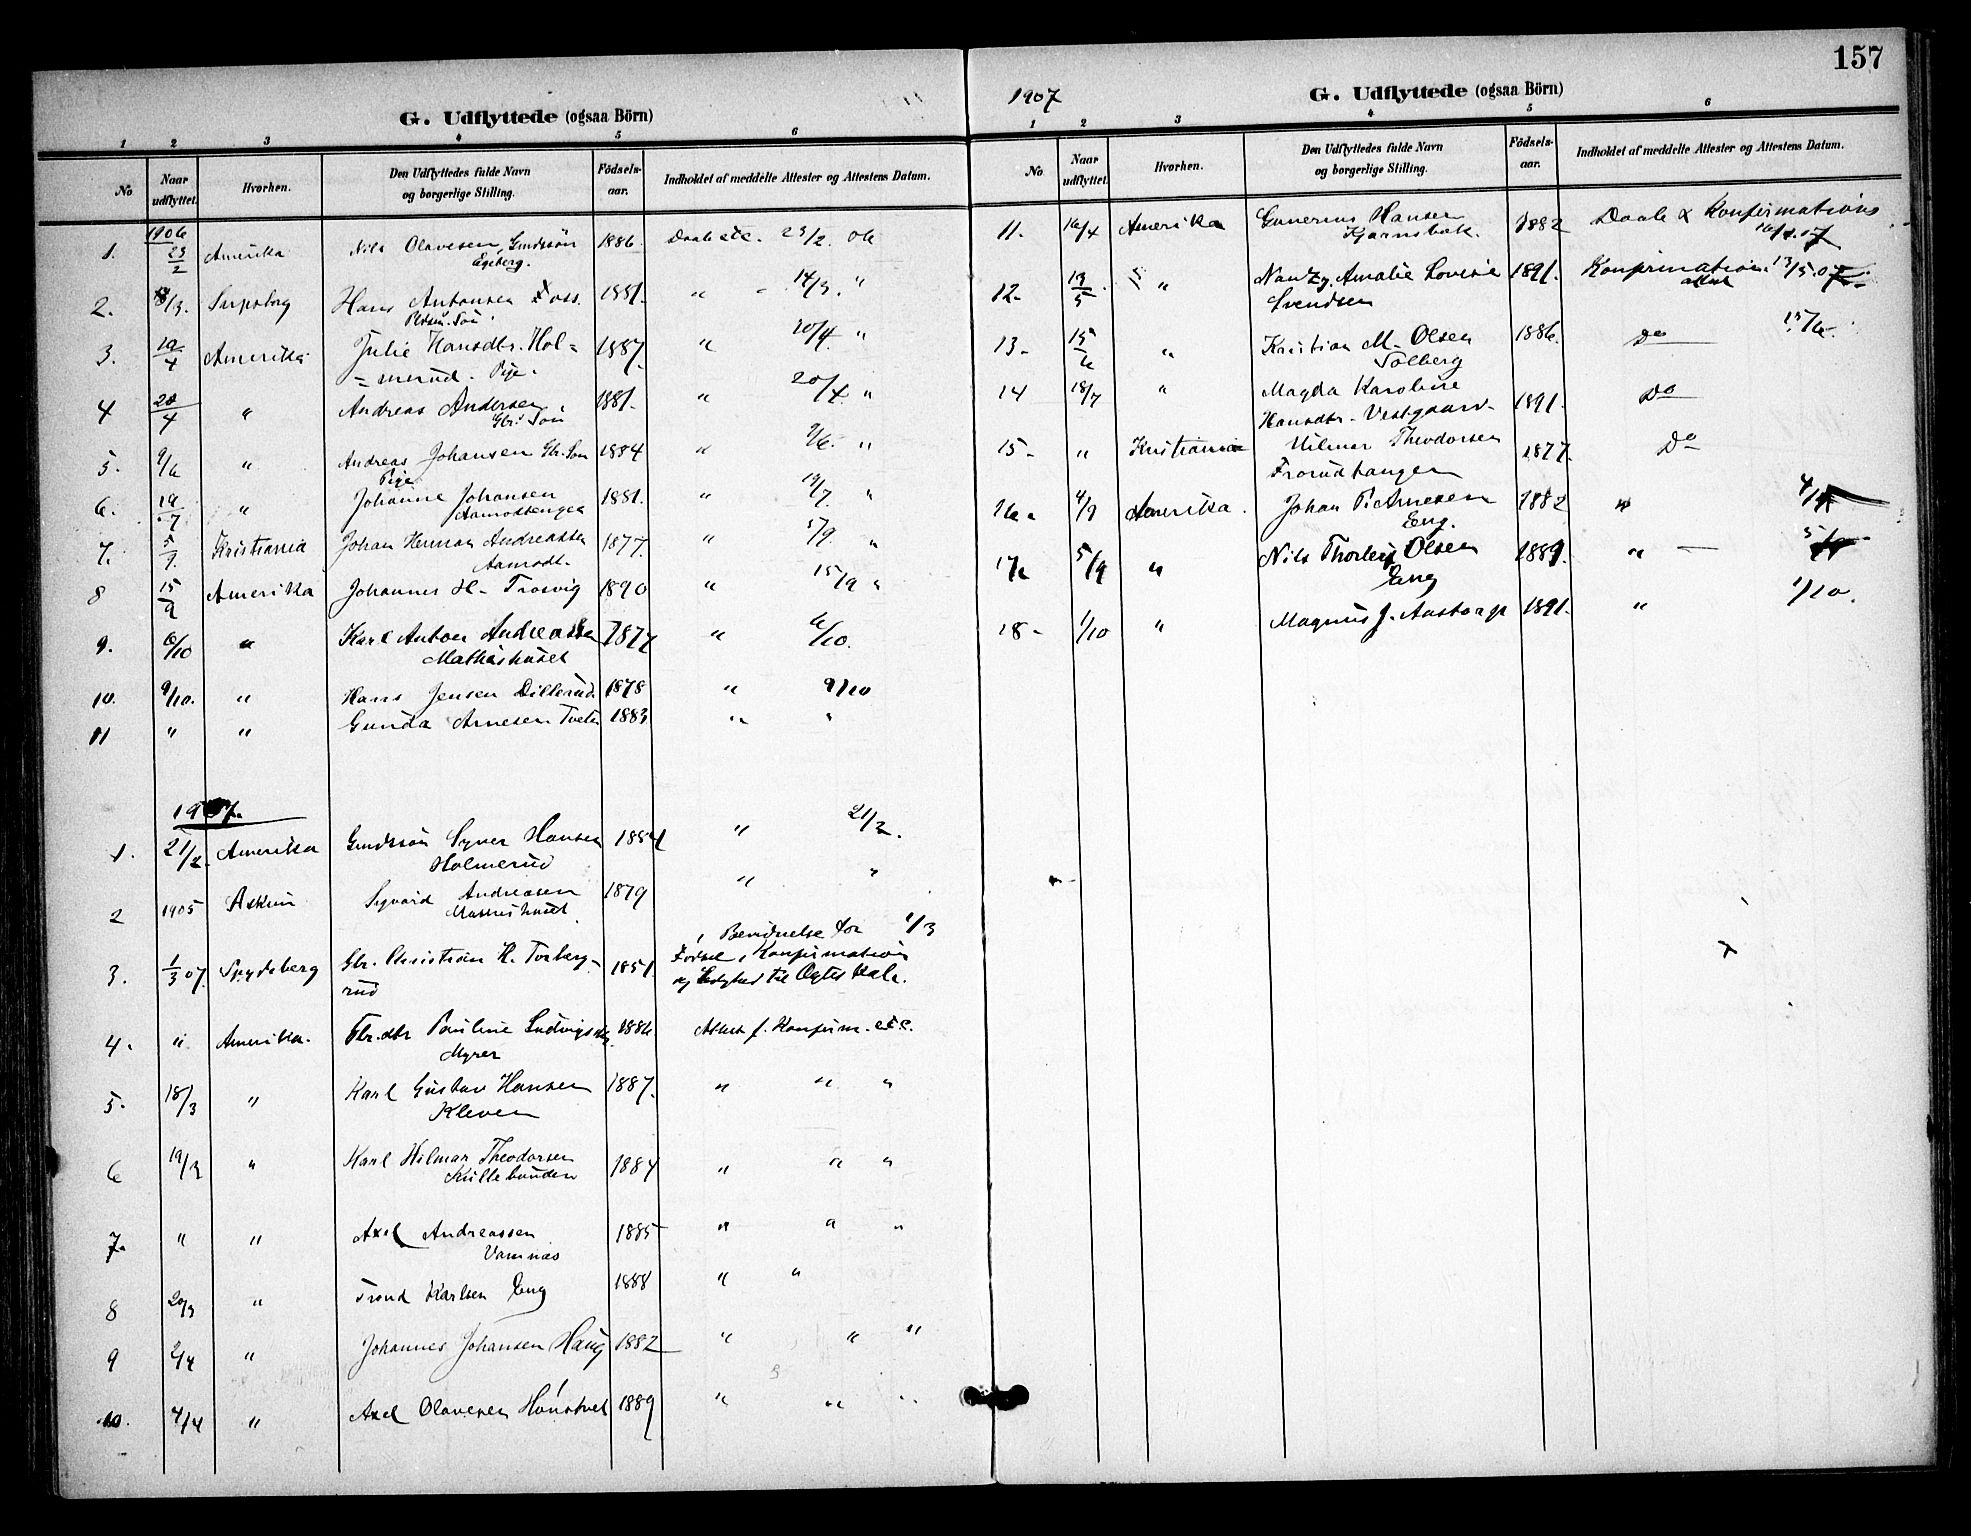 157
G. Udflyttede (ogsaa Börn)
1 2 3 4 5 6
No Naar udflyttet. Hvorhen. Den Udflyttedes fulde Navn og borgerlige Stilling. Födsels-aar. Indholdet af meddelte Attester og Attestens Datum.
1906
1. 23/2 Amerika Nils Olavesen 1886. Daab etc. 23/2. 06
Egeberg.
2. /3. Sarpsborg Hans Antonsen Foss 1881. " 14/3. "
3. 19/4 Amerika Julie Hansdtr. Hol= 1887. " 20/4 "
=merud. Pige.
4 20/4 " Andreas Andersen 1881. " 20/4 "
Gbr. Søn
5. 9/6 " Andreas Johansen Gbr. Søn 1884 " 9/6. "
Pige
6. 19/7 " Johanne Johansen 1881. " 19/7. "
7. 5/9. Kristiania Johan Herman Andreassen 1877. " 5/9. "
Aamodt.
8 15/9 Amerika Johannes H. Trosvig 1890 " 15/9 "
9. 6/10 " Karl Anton Andreassen 1877 " 6/10.
Mathishuset
10. 9/10. " Hans Jensen Dillerud. 1878 " 9/10
11 " " Gunda Arnesen Tveten 1883 " "
1907.
1. 21/2. Amerika Syver Hansen 1884 " 21/2.
Holmerud
2 1905 Askim Sigvard Andreasen 1879 " "
Mathishuset.
3. 1/3 07. Spydeberg Gbr. Christian H. Torberg- 1851. Bevidnelse for 1/3
rud Födsel, Konfirmation
og Ledighed til Ægteskab.
4. " Amerika. Gbr.dtr Pauline Ludvigsdtr. 1886 Attest f. Konfirm. etc.
Myrer
5. 18/3 " Karl Gustav Hansen 1887. " " "
Kleven
6 19/3 " Karl Hilmar Theodorsen 1884 " " "
7. " " Axel Andreassen 1885 " " "
Vamnæs
8 20/3 " Trond Karlsen Eng 1888 " "
9 2/4 " Johannes Johansen Haug 1882 " " "
10. 4/4 " Axel Olavesen 1889 " " "
1907
G. Udflyttede (ogsaa Börn)
1 2 3 4 5 6
No Naar udflyttet. Hvorhen. Den Udflyttedes fulde Navn og borgerlige Stilling. Födsels-aar. Indholdet af meddelte Attester og Attestens Datum.
11. 16/4 Amerika Gunerius Hansen 1882 Daab & Konfirmations
Kjærnsbæk. 16/4.07
12. 13/5. " Amalie Lovise 1891. Konfirmations 13/5.07
Svendsen attest
13. 15/6 " Kristian M. Olsen 1886. Do 15/6.
Solberg
14 18/7 " Magda Karoline
Hansdtr. Vestgaard. 1891. Do
15. " Kristiania Hilmar Theodorsen 1877. Do
Frorudhaugen
16. 4/9 Amerika. Johan P. Arnesen 1882 " 4/9
Eng.
17. 5/9 " Nils Thorleif Olsen 1889. " 5/9
Eng
18. 1/10 " Magnus J. Aastorp 1891. " 1/10.